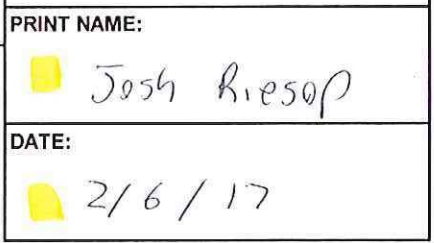 PRINT NAME:
Josh Riesop
DATE:
2/6/17